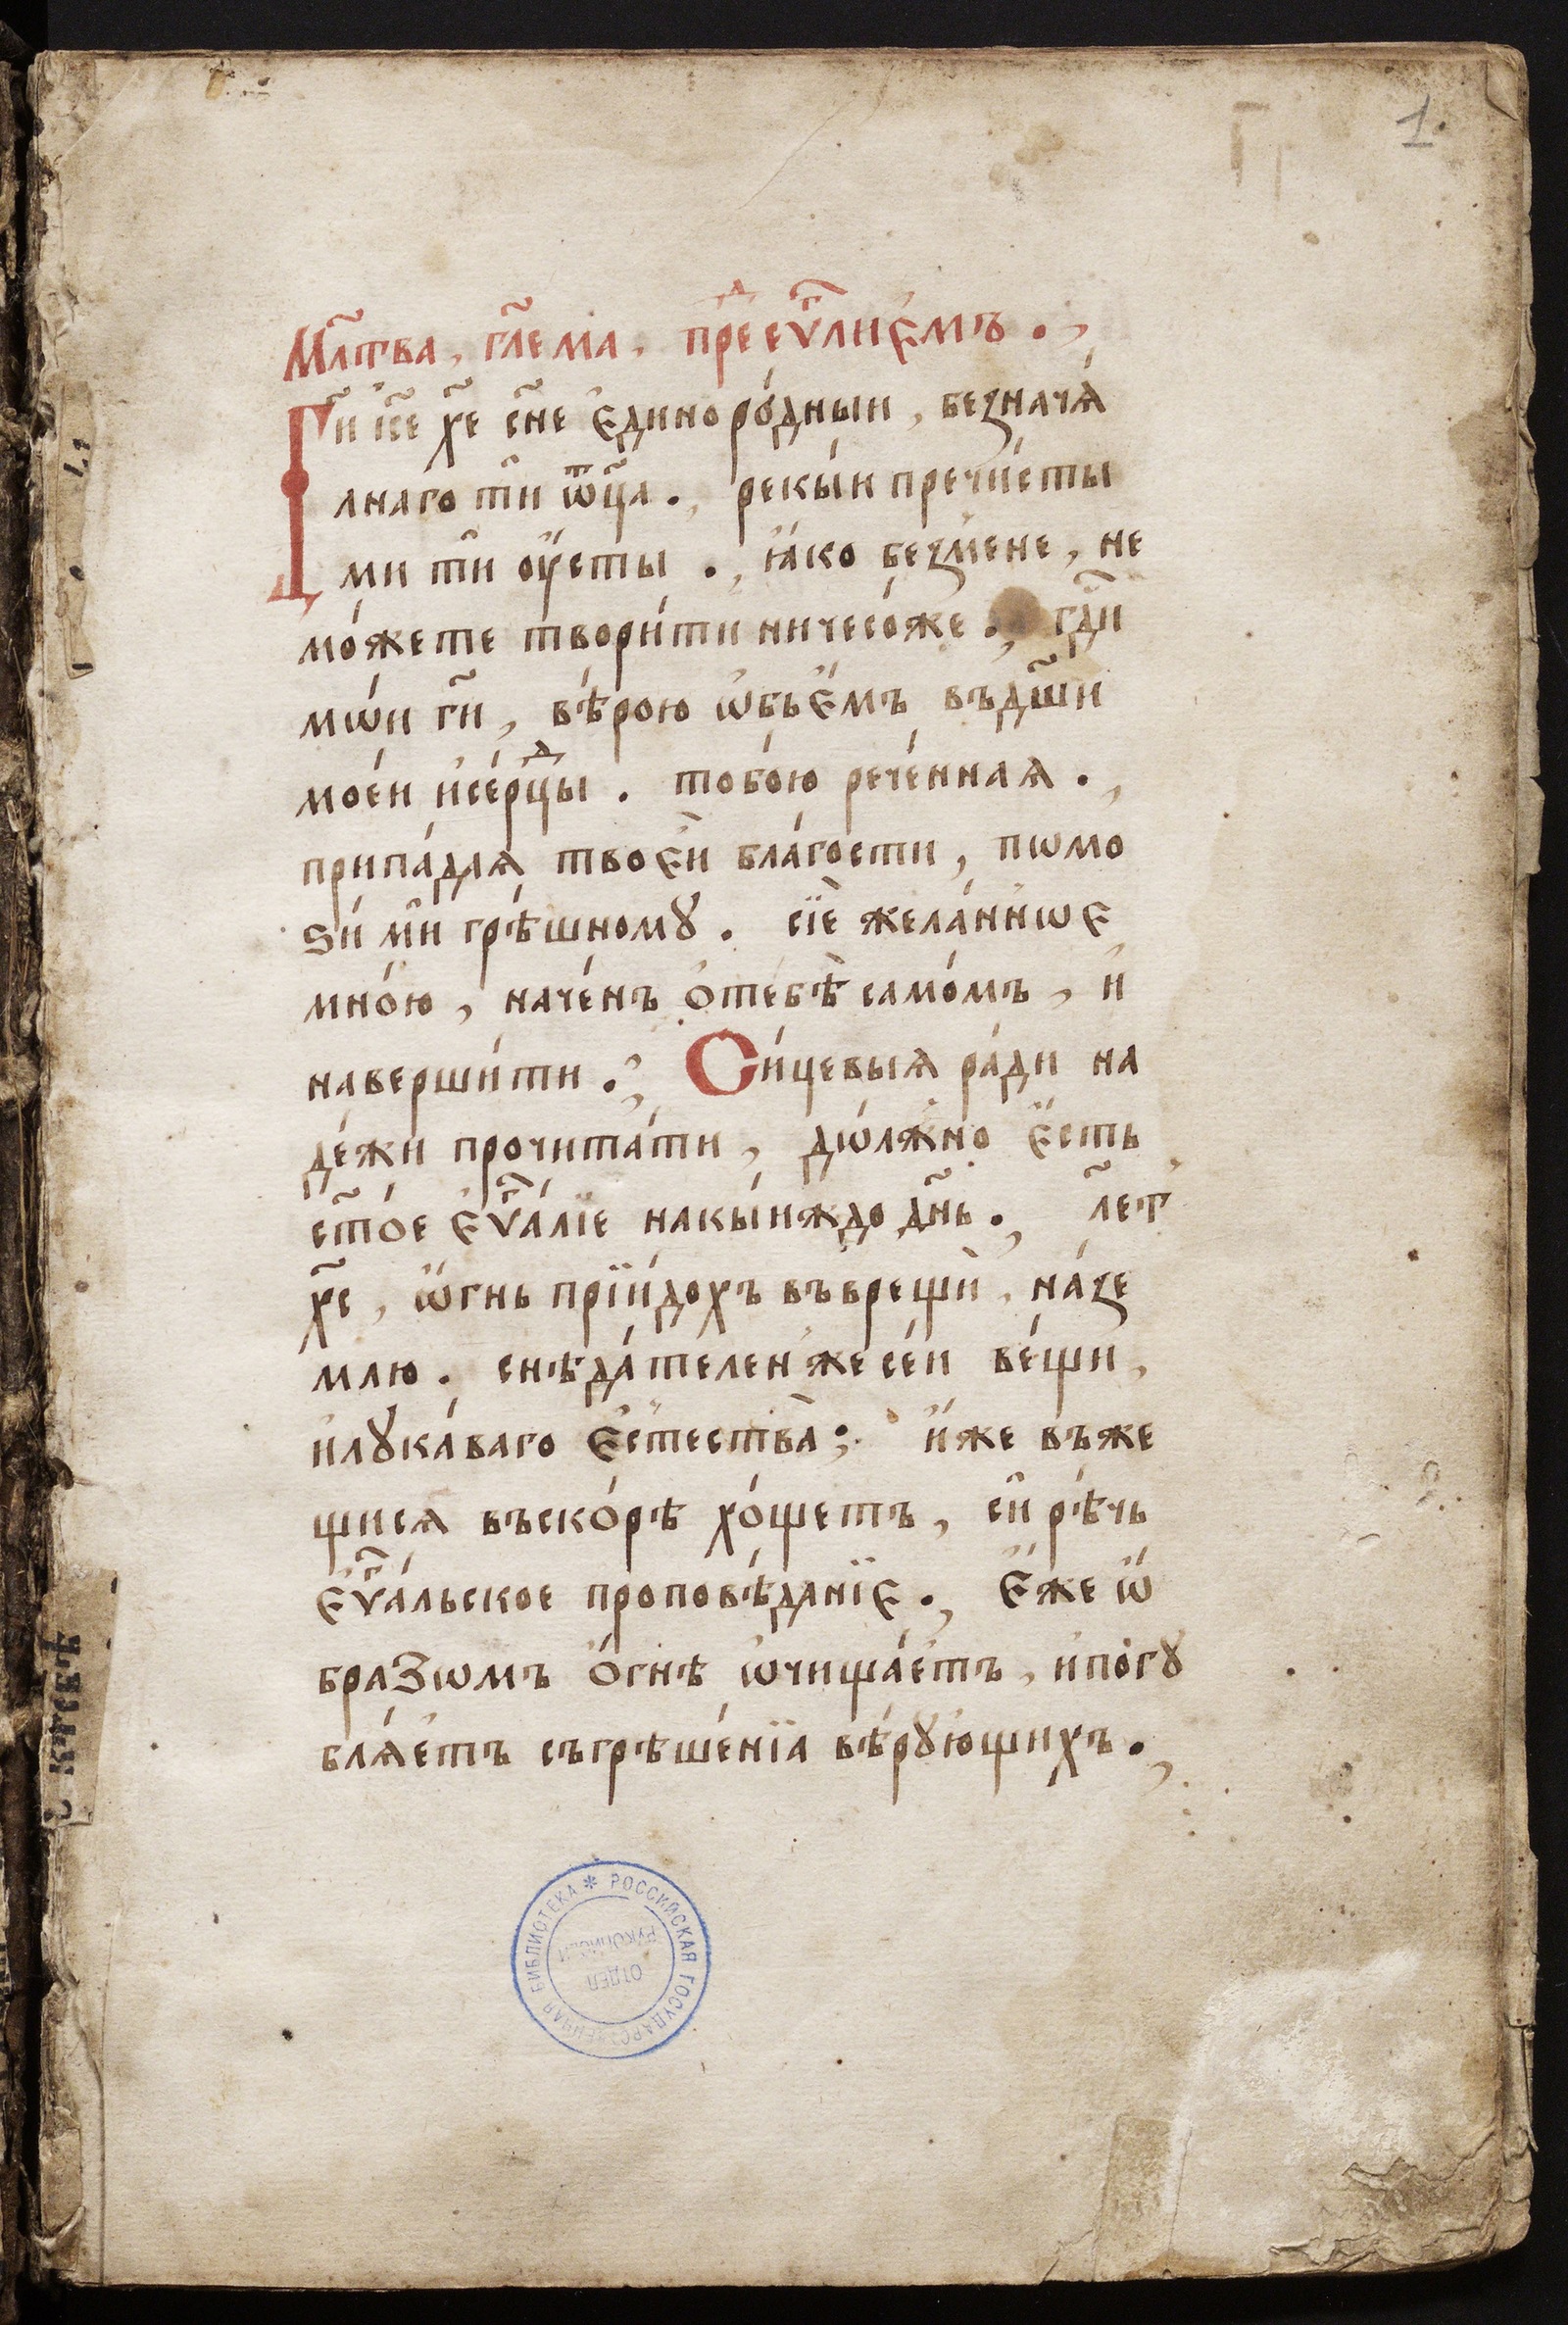 1.
Мл҃тва, гл҃емаа, пред̾еѵⷢ҇лиемъ.,
Гⷭ҇и і҆с҃е х҃е с҃не є҆диноро́дныи, безнача́
лнаго ти̑ ѿц҃а., рекы́и пречи́сты
ми ти̑ ѹ҆сты., ꙗ҆́ко безмене, не
мо́жете твори́ти ничесо́же., гдⷭ҇и
мѡ́и гⷭ҇и, вѣ́рою ѡ҆бье҆́мъ въдш҃и
мое́и и҆се́рдцы. тобо́ю рече́нная.,
припа́даѧ твоєѝ бла́гости, пѡмо
ѕи́ ми̑ грѣ́шномꙋ. сїѐ жела́нїѡє
мно́ю, наче́нъ ѻ҆тебѣ̀ само́мъ, и҆
наверши́ти., Си́цевыѧ ра́ди на
де́жи прочита́ти, дѡ́лжно є҆́сть
ст҃о́е є҆ѵⷢ҇а́лїе накы́иждо д҃нь., гл҃ет
х҃с, ѻ҆́гнь прїи́дохъ въврещѝ, на́зе
млю. снѣда́телен же се́и ве́щи,
и҆лꙋка́ваго є҆стества̀; и҆́же въже
щисѧ въско́рѣ хо́щетъ, си̑ рѣ́чь
є҆ѵⷢ҇а́льское проповѣ́данїє., є҆́же ѡ҆́
бразѡмъ ѻ҆́гнѣ ѡ҆чища́етъ, и҆погꙋ
блѧ́етъ съгрѣше́нїа вѣ́рꙋющихъ.,
РОССИЙСКАЯ ГОСУДАРСТВЕННАЯ БИБЛИОТЕКА *
ОТДЕЛ
РУКОПИСЕЙ